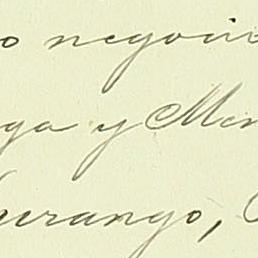 o negocio
ga y Men
urango,